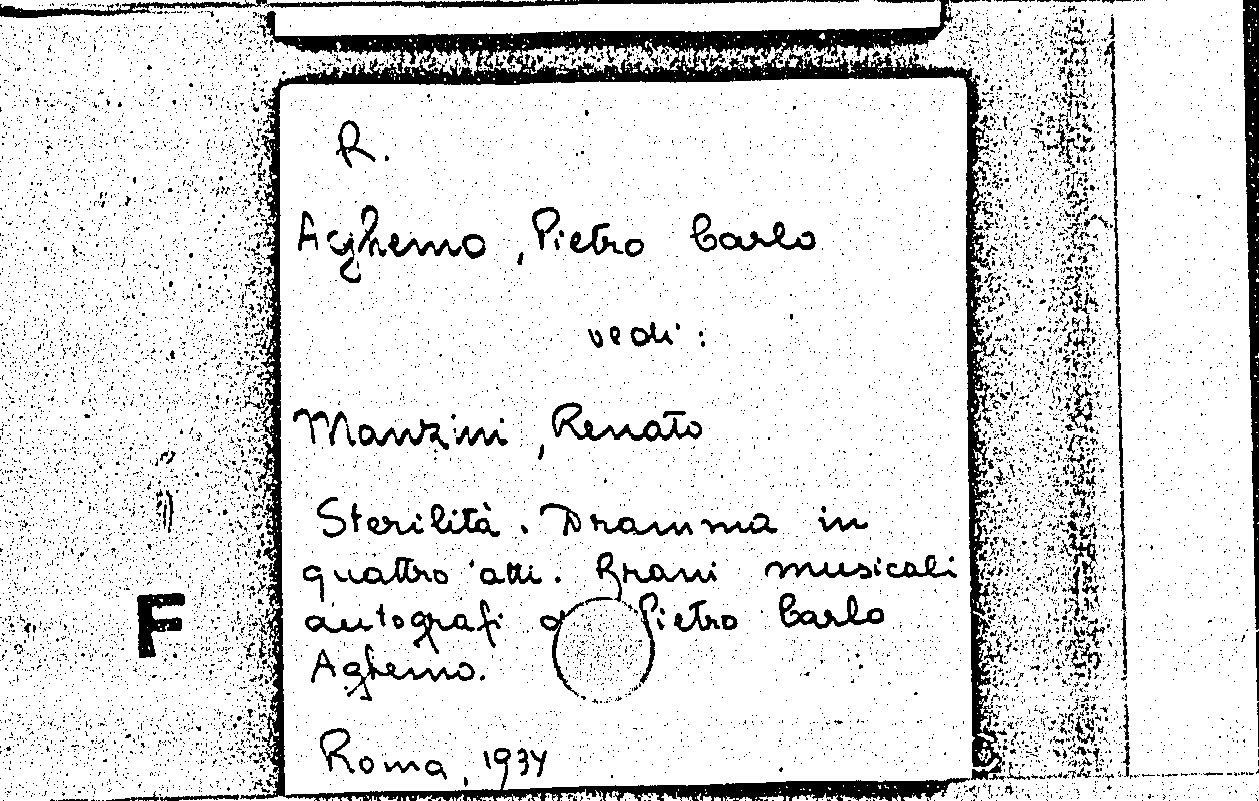 R.
Aghemo, Pietro Carlo
vedi:
Manzini, Renato
Sterilità. Dramma in
quattro atti. Brani musicali
autografi Pietro Carlo
Aghemo.
Roma, 1934
F